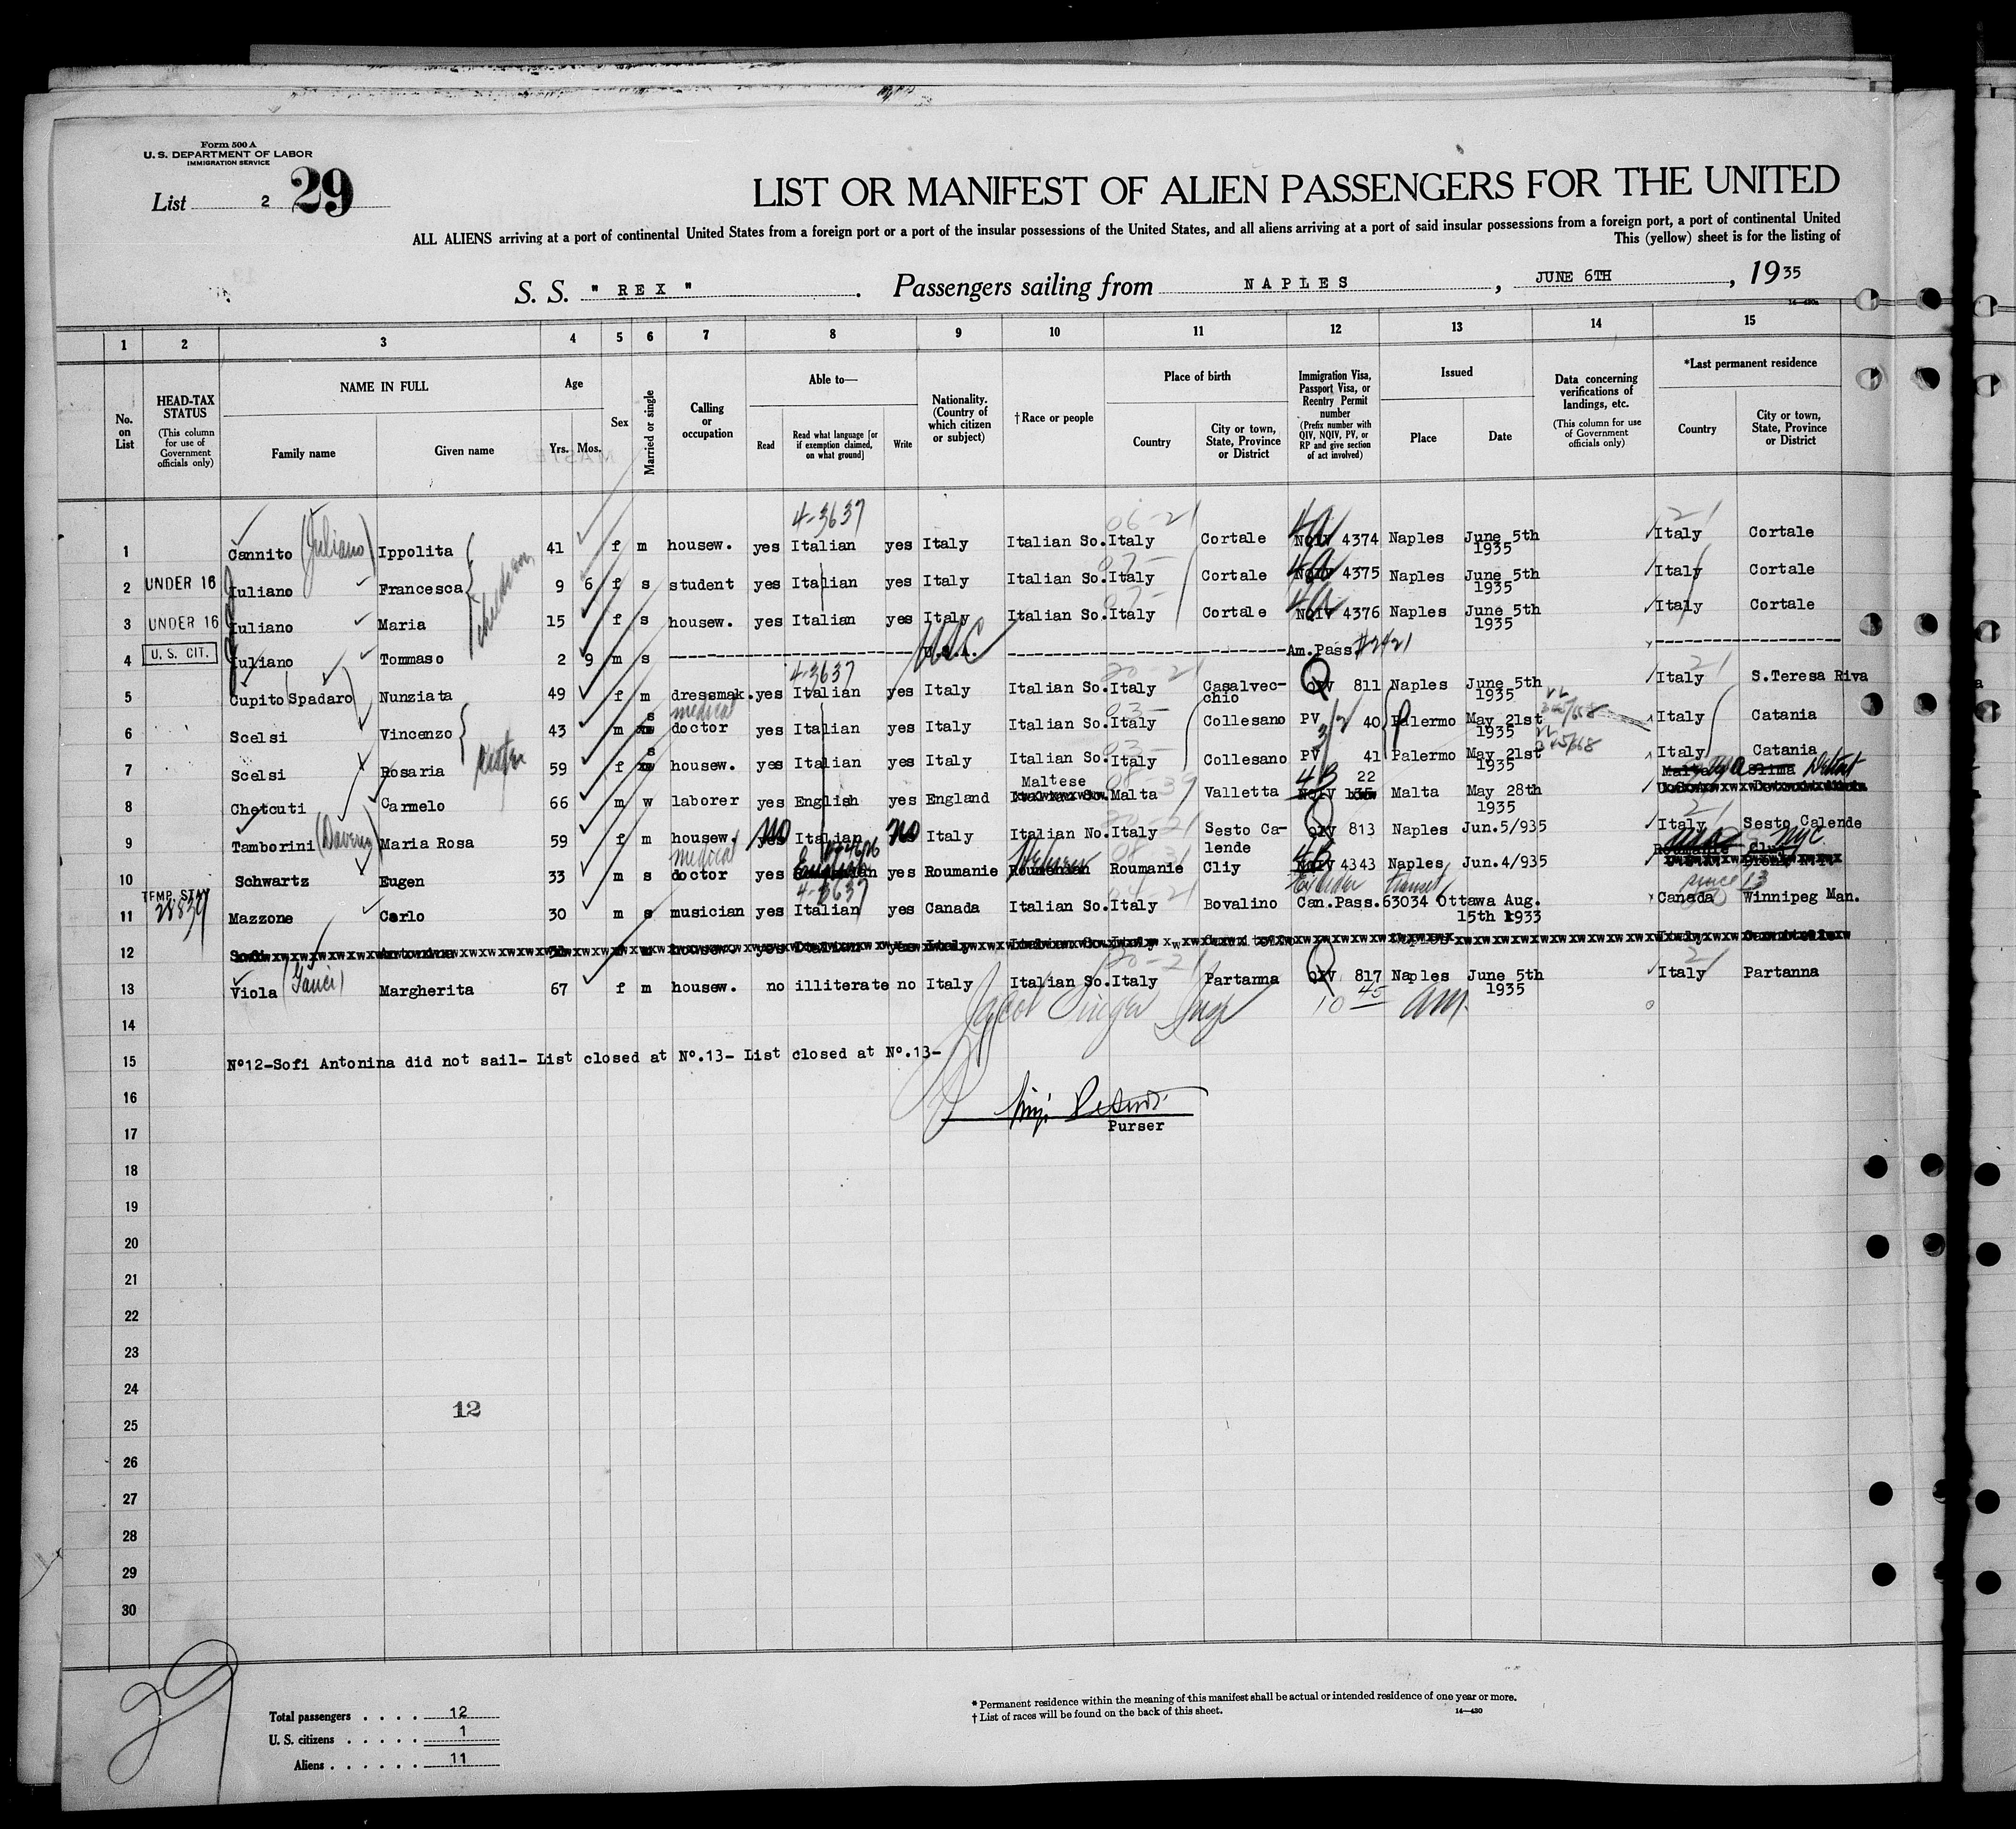 Form 500 A
U. S. DEPARTMENT OF LABOR
IMMIGRATION SERVICE
List 2 29
LIST OR MANIFEST OF ALIEN PASSENGERS FOR THE UNITED
ALL ALIENS arriving at a port of continental United States from a foreign port or a port of the insular possessions of the United States, and all aliens arriving at a port of said insular possessions from a foreign port, a port of continental United
This (yellow) sheet is for the listing of
S. S. " REX " . Passengers sailing from NAPLES , JUNE 6TH , 1935
1 2 3 4 5 6 7 8 9 10 11 12 13 14 15
No. on List
HEAD-TAX STATUS (This column for use of Government officials only)
NAME IN FULL Family name Given name
Age Yrs. Mos.
Sex
Married or single
Calling or occupation
Able to— Read Read what language [or if exemption claimed, on what ground] Write
Nationality. (Country of which citizen or subject)
†Race or people
Place of birth Country City or town, State, Province or District
Immigration Visa, Passport Visa, or Reentry Permit number (Prefix number with QIV, NQIV, PV, or RP and give section of act involved)
Issued Place Date
Data concerning verifications of landings, etc. (This column for use of Government officials only)
*Last permanent residence Country City or town, State, Province or District
4-3637
1 Cannito (Juliano) Ippolita 41 f m housew. yes Italian yes Italy Italian So. Italy Cortale 4A NQIV 4374 Naples June 5th 1935 Italy Cortale
2 UNDER 16 Iuliano Francesca 9 6 f s student yes Italian yes Italy Italian So. Italy Cortale 4A NQIV 4375 Naples June 5th 1935 Italy Cortale
3 UNDER 16 Iuliano Maria 15 f s housew. yes Italian yes Italy Italian So. Italy Cortale 4A NQIV 4376 Naples June 5th 1935 Italy Cortale
children
4 U. S. CIT. Iuliano Tommaso 2 9 m s USC Am.Pass #2421
4-3637
5 Cupito (Spadaro) Nunziata 49 f m dressmak. yes Italian yes Italy Italian So. Italy Casalvec-chio QIV 811 Naples June 5th 1935 Italy S.Teresa Riva
6 Scelsi Vincenzo 43 m s medical doctor yes Italian yes Italy Italian So. Italy Collesano PV 40 Palermo May 21st 1935 Italy Catania
7 Scelsi Rosaria 59 f s housew. yes Italian yes Italy Italian So. Italy Collesano PV 41 Palermo May 21st 1935 Italy Catania
8 Chetcuti Carmelo 66 m w laborer yes English yes England Maltese Malta Valletta 4B NQIV 22 Malta May 28th 1935 Malta Slima Detroit
9 Tamborini Maria Rosa 59 f m housew. no Italian no Italy Italian No. Italy Sesto Ca-lende QIV 813 Naples Jun.5/935 Italy Sesto Calende
10 Schwartz Eugen 33 m s medical doctor yes English yes Roumanie Hebrew Roumanie Cliy 4B NQIV 4343 Naples Jun.4/935 Roumanie NYC
4-3637
11 TEMP. STAY Mazzone Carlo 30 m s musician yes Italian yes Canada Italian So. Italy Bovalino Can.Pass.63034 Ottawa Aug. 15th 1933 Canada since 13 Winnipeg Man.
12 Sofi Antonina
13 Viola (Tauci) Margherita 67 f m housew. no illiterate no Italy Italian So. Italy Partanna QIV 817 Naples June 5th 1935 Italy Partanna
14 Jacob Singer Insp 10 45 am.
15 Nº12-Sofi Antonina did not sail- List closed at Nº.13- List closed at Nº.13-
16
17 Purser
18
19
20
21
22
23
24
12
25
26
27
28
29
30
29
Total passengers . . . . 12
U. S. citizens . . . . . 1
Aliens . . . . . . 11
* Permanent residence within the meaning of this manifest shall be actual or intended residence of one year or more.
† List of races will be found on the back of this sheet.
14—430